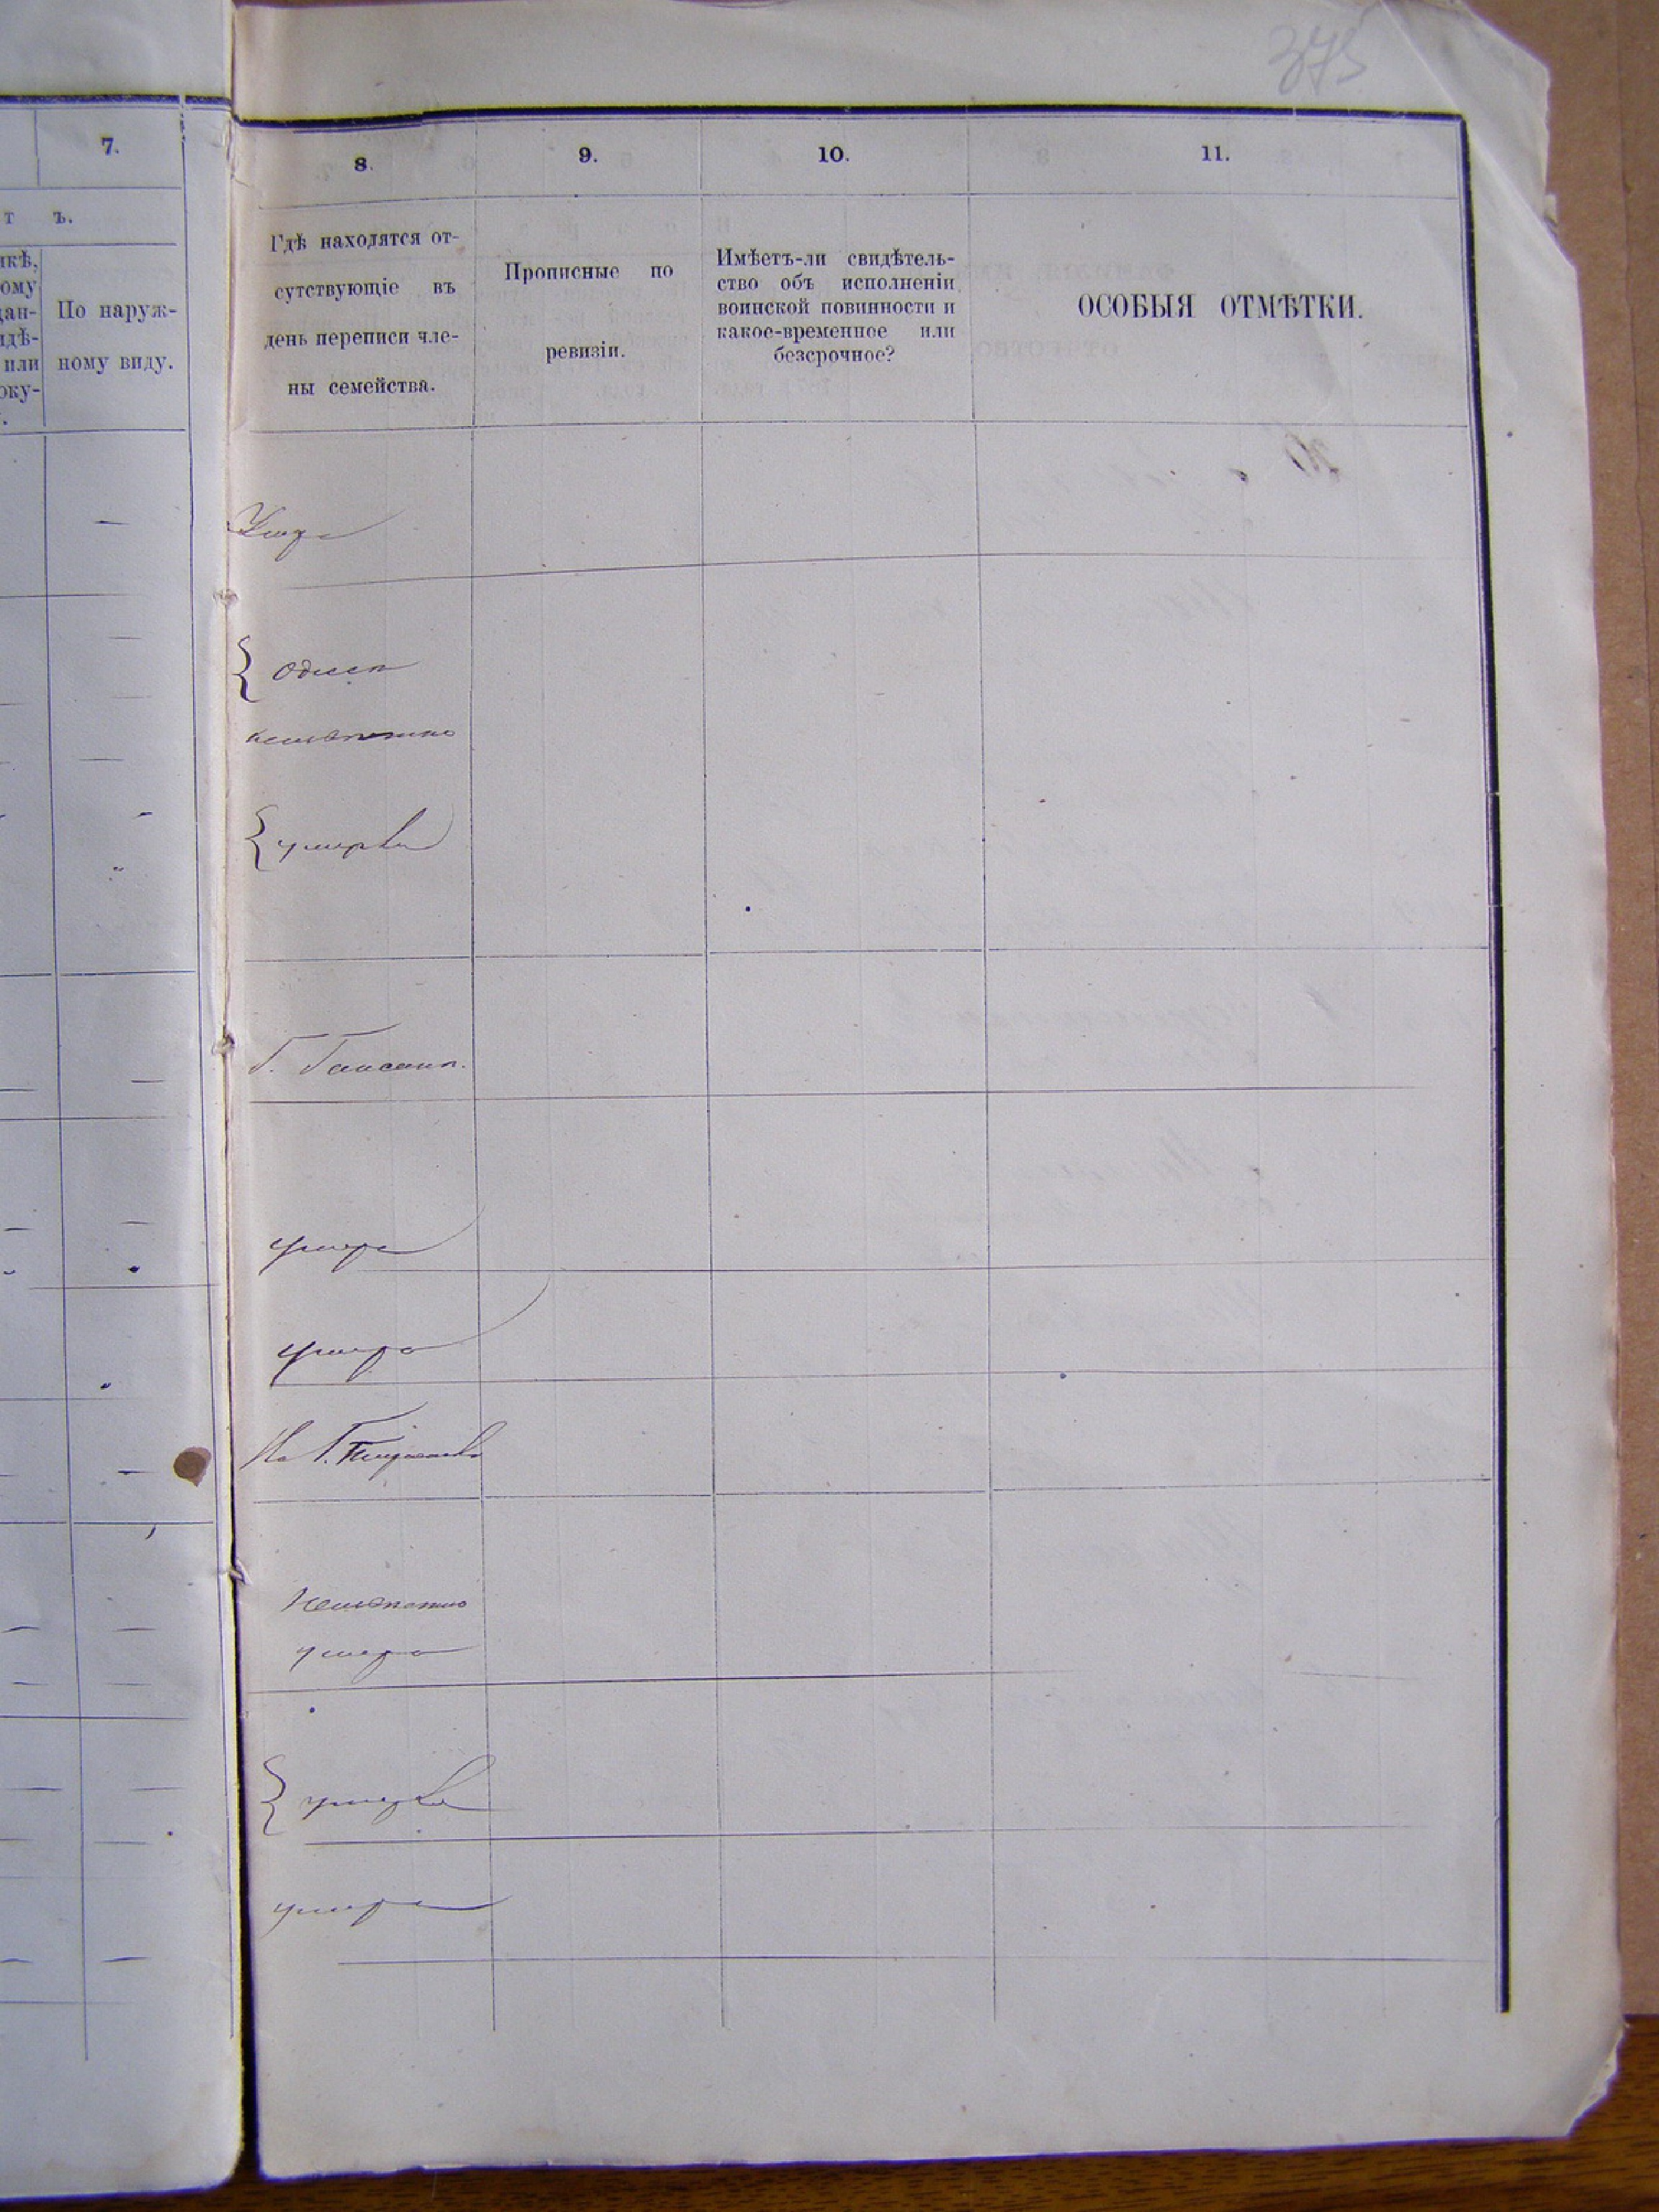 375
7.
т ъ.
По наруж-
ному виду.
8.
Гдѣ находятся от-
сутствующіе въ
день переписи чле-
ны семейства.
9.
Прописные по
ревизіи.
10.
Имѣетъ-ли свидѣтель-
ство объ исполненіи
воинской повинности и
какое-временное или
безсрочное?
11.
ОСОБЫЯ ОТМѢТКИ.
Умеръ
неизвѣстно
умерли
Г. Гайсинъ.
умеръ
умеръ
На Г.
Неизвѣстно
умеръ
умерли
умеръ